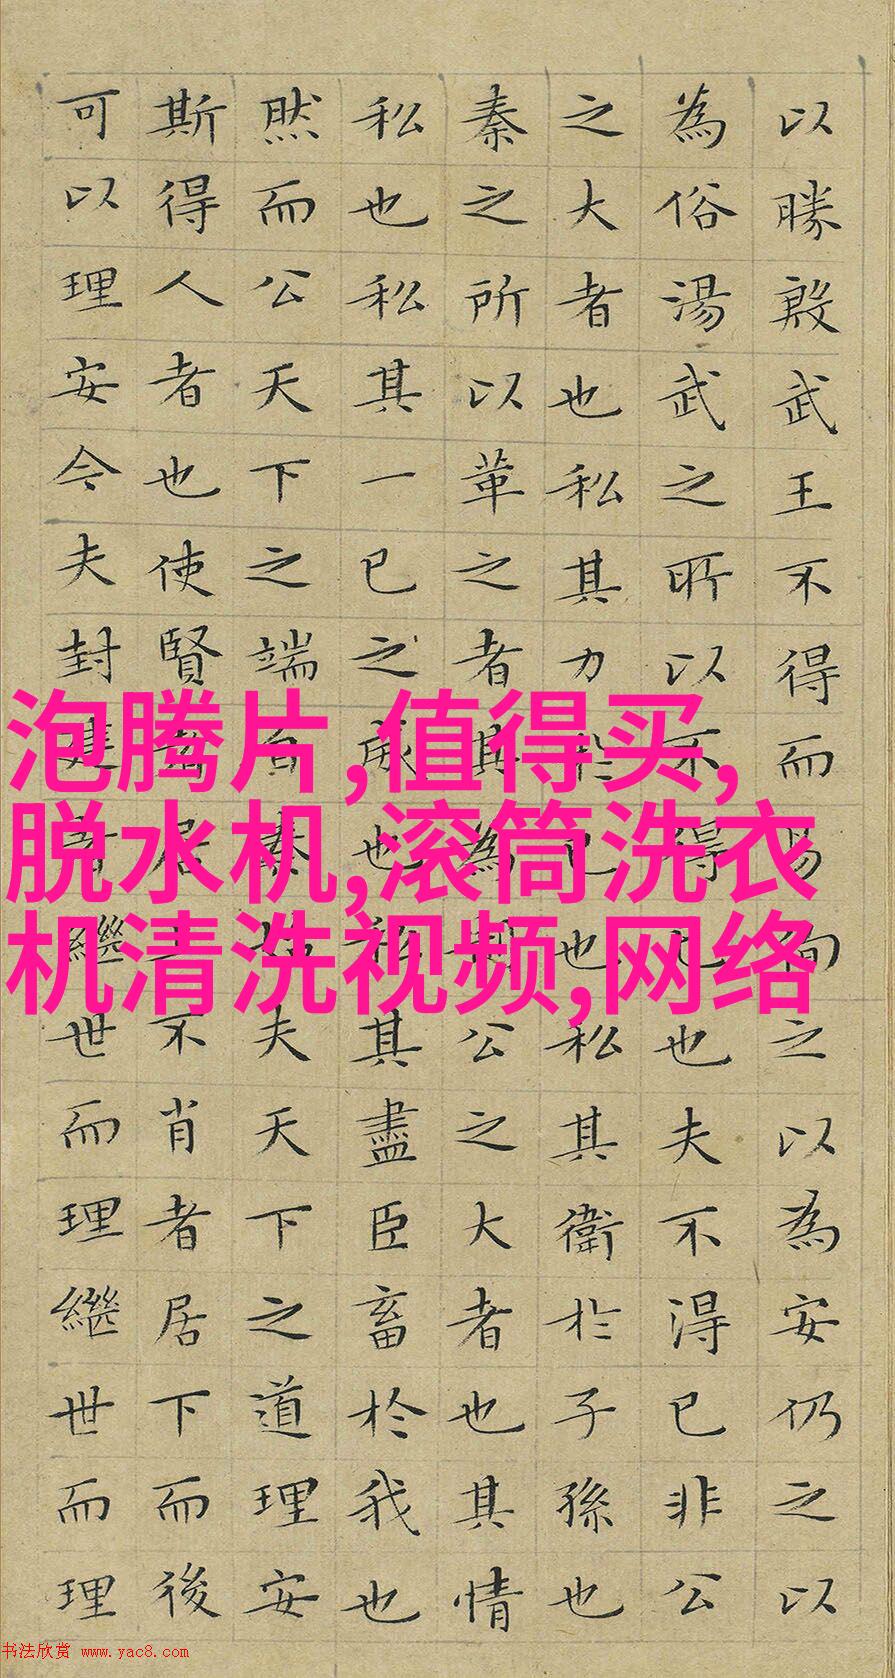 以勝殷武王不得而易徇之以為安仍之以
為俗湯武之所以不得已也夫不得已非公
之大者也私其力於已也私其衛於子孫也
秦之所以革之者其為制公之大者也其情
私也私其一已之威也私其盡臣畜於我也
然而公天下之端自秦始夫天下之道理安
斯得人者也使賢者居上不肖者居下而後
可以理安今夫封建者繼世而理繼世而理
泡腾片,值得买,
脱水机,滚筒洗衣
机清洗视频,网络
书法欣赏 www.yac8.com